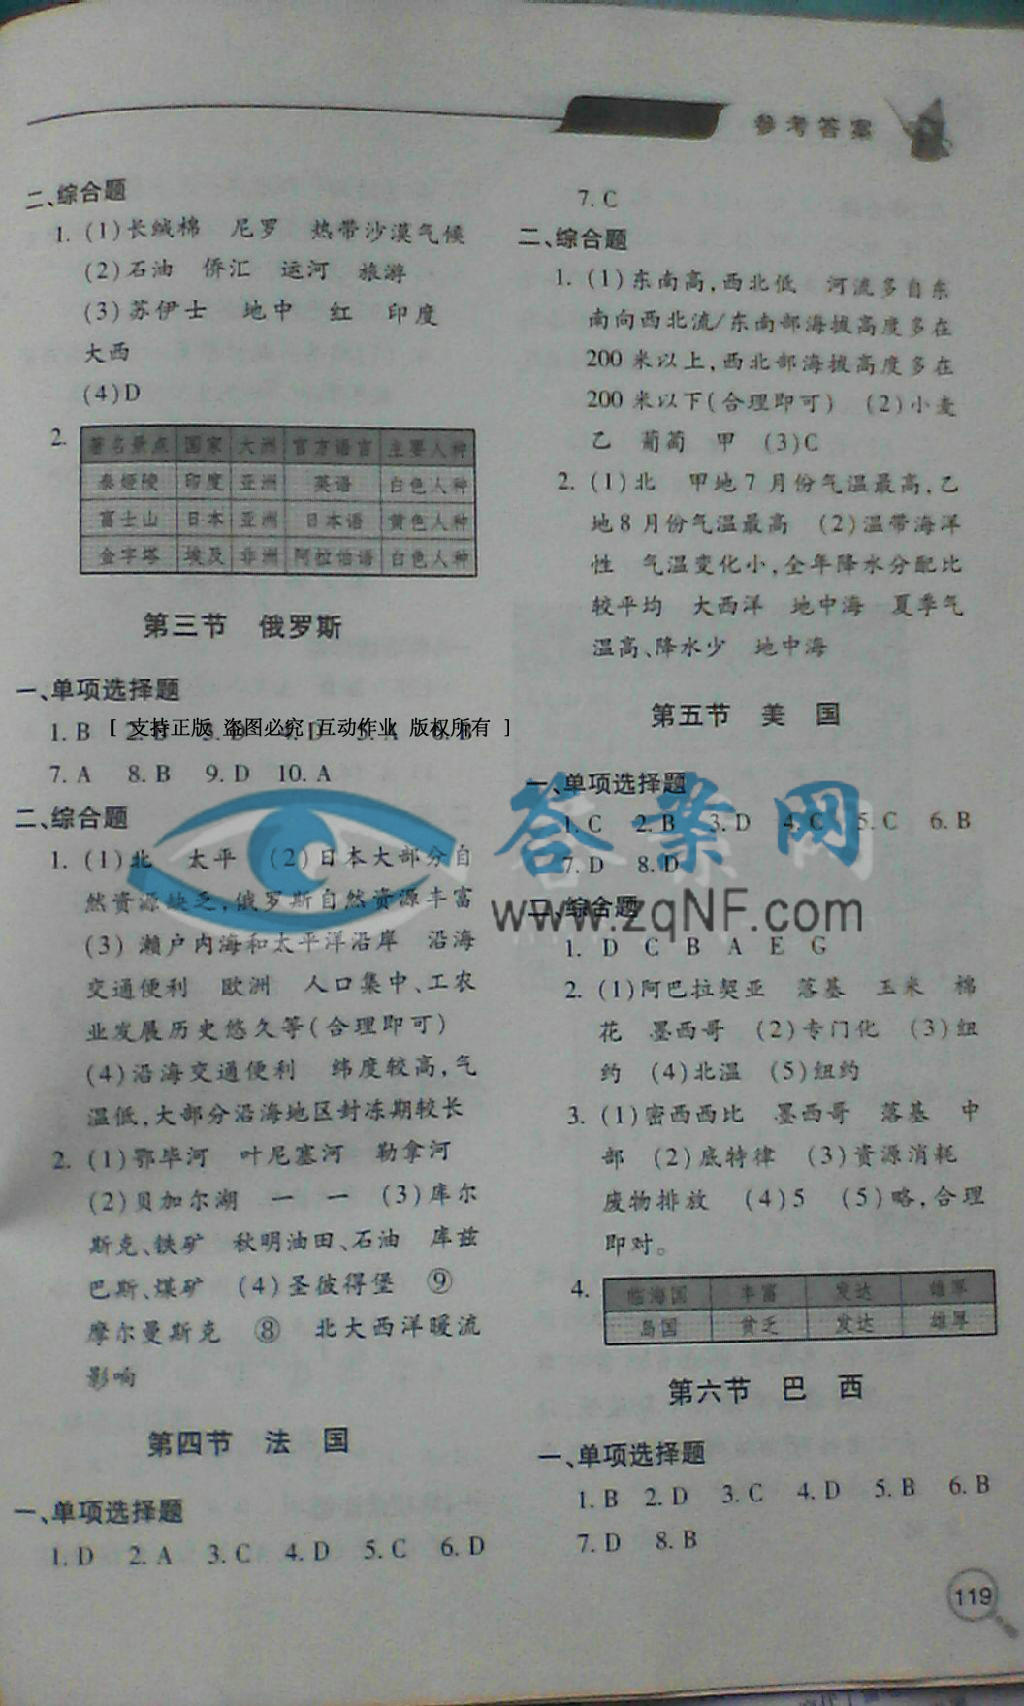 参考答案
二、综合题
1. (1)长绒棉 尼罗 热带沙漠气候
(2)石油 侨汇 运河 旅游
(3)苏伊士 地中 红 印度
大西
(4)D
2.
著名景点 国家 大洲 官方语言 主要人种
泰姬陵 印度 亚洲 英语 白色人种
富士山 日本 亚洲 日本语 黄色人种
金字塔 埃及 非洲 阿拉伯语 白色人种
第三节 俄罗斯
一、单项选择题
1. B 2. B 3. D 4. D 5. A 6. B
[ 支持正版 盗图必究 互动作业 版权所有 ]
7. A 8. B 9. D 10. A
二、综合题
1. (1)北 太平 (2)日本大部分自
然资源缺乏,俄罗斯自然资源丰富
(3) 濑户内海和太平洋沿岸 沿海
交通便利 欧洲 人口集中、工农
业发展历史悠久等(合理即可)
(4)沿海交通便利 纬度较高,气
温低,大部分沿海地区封冻期较长
2. (1)鄂毕河 叶尼塞河 勒拿河
(2)贝加尔湖 一 一 (3)库尔
斯克、铁矿 秋明油田、石油 库兹
巴斯、煤矿 (4)圣彼得堡 ⑨
摩尔曼斯克 ⑧ 北大西洋暖流
影响
第四节 法 国
一、单项选择题
1. D 2. A 3. C 4. D 5. C 6. D
7. C
二、综合题
1. (1)东南高,西北低 河流多自东
南向西北流/东南部海拔高度多在
200 米以上,西北部海拔高度多在
200 米以下(合理即可) (2)小麦
乙 葡萄 甲 (3)C
2. (1)北 甲地7月份气温最高,乙
地8月份气温最高 (2)温带海洋
性 气温变化小,全年降水分配比
较平均 大西洋 地中海 夏季气
温高、降水少 地中海
第五节 美 国
一、单项选择题
答案网
1. C 2. B 3. D 4. C 5. C 6. B
7. D 8. D
www.zqNF.com
二、综合题
1. D C B A E G
2. (1)阿巴拉契亚 落基 玉米 棉
花 墨西哥 (2)专门化 (3)纽
约 (4)北温 (5)纽约
3. (1)密西西比 墨西哥 落基 中
部 (2)底特律 (3)资源消耗
废物排放 (4)5 (5)略,合理
即对。
4.
临海国 丰富 发达 雄厚
岛国 贫乏 发达 雄厚
第六节 巴 西
一、单项选择题
1. B 2. D 3. C 4. D 5. B 6. B
7. D 8. B
119